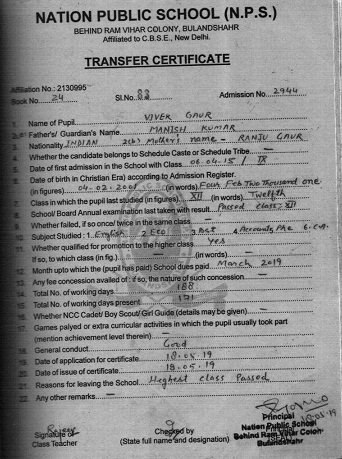 NATION PUBLIC SCHOOL (N.P.S.)
BEHIND RAM VIHAR COLONY, BULANDSHAHR
Affiliated to C.B.S.E., New Delhi.
TRANSFER CERTIFICATE
Affiliation No.: 2130995
Book No. 24 Sl.No. 83 Admission No. 2944
1. Name of Pupil VIVEK GAUR
2(a) Father's/ Guardian's Name MANISH KUMAR
3. Nationality INDIAN 2(b) Mother's name - RANJU GAUR
4. Whether the candidate belongs to Schedule Caste or Schedule Tribe —
5. Date of first admission in the School with Class 06.04.15 / IX
6. Date of birth in Christian Era) according to Admission Register.
(in figures) 04-02-2001 (in words) Four Feb Two Thousand one
7. Class in which the pupil last studied (in figures) XII (in words) Twelfth
8. School/ Board Annual examination last taken with result Passed class XII
9. Whether failed, if so once/ twice in the same class —
Subject Studied : 1. English 2 Eco 3 Bst 4 Accounts, Phe 6.
11. Whether qualified for promotion to the higher class Yes
If so, to which class (in fig.) — (in words) —
12. Month upto which the (pupil has paid) School dues paid March 2019
13. Any fee concession availed of : so, the nature of such concession —
14. Total No. of working days 188
15. Total No. of working days present 171
16. Whether NCC Cadet/ Boy Scout/ Girl Guide (details may be given) —
17. Games palyed or extra curricular activities in which the pupil usually took part
(mention achievement level therein) —
18. General conduct Good
19. Date of application for certificate 18.05.19
20. Date of issue of certificate 18.05.19
21. Reasons for leaving the School Heghest class Passed
22. Any other remarks —
Principal
Nation Public School
Behind Ram Vihar Colon
Bulandshahr
Signature of
Class Teacher
Checked by
(State full name and designation)